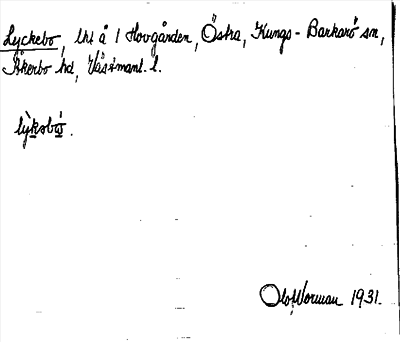 Lyckebo, lht å 1 Hovgården, Östra, Kungs-Barkarö sn,
Åkerbo hd, Västmanl. l.
lỳksbó.
Olof Worman 1931.